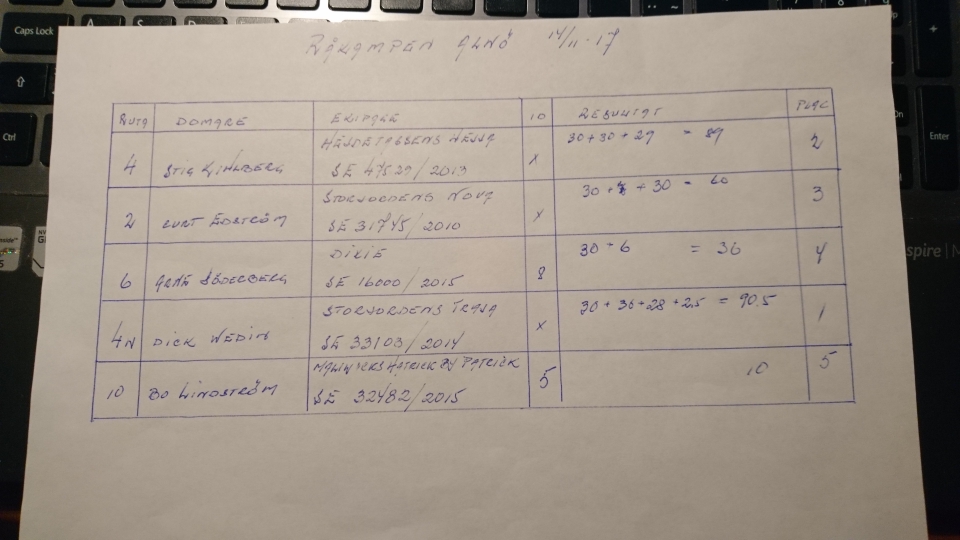 Caps Lock
Ctrl
Enter
RÅKAMPEN ALNÖ 14/11-17
RUTA DOMARE EKIPAGE ID RESULTAT PLAC
4 STIG KIHLBERG SE 47529/2013 X 30+30+29 = 89 2
2 CURT EDSTRÖM STORJORDENS NOVA
SE 31745/2010 X 30+ +30 = 60 3
6 ARNE SÖDERBERG DIXIE
SE 16000/2015 8 30+6 = 36 4
4N DICK WEDIN STORJORDENS TRAJA
SE 33103/2014 X 30+30+28+2.5 = 90.5 1
10 BO LINDSTRÖM PATRICK
SE 32482/2015 5 10 5
spire